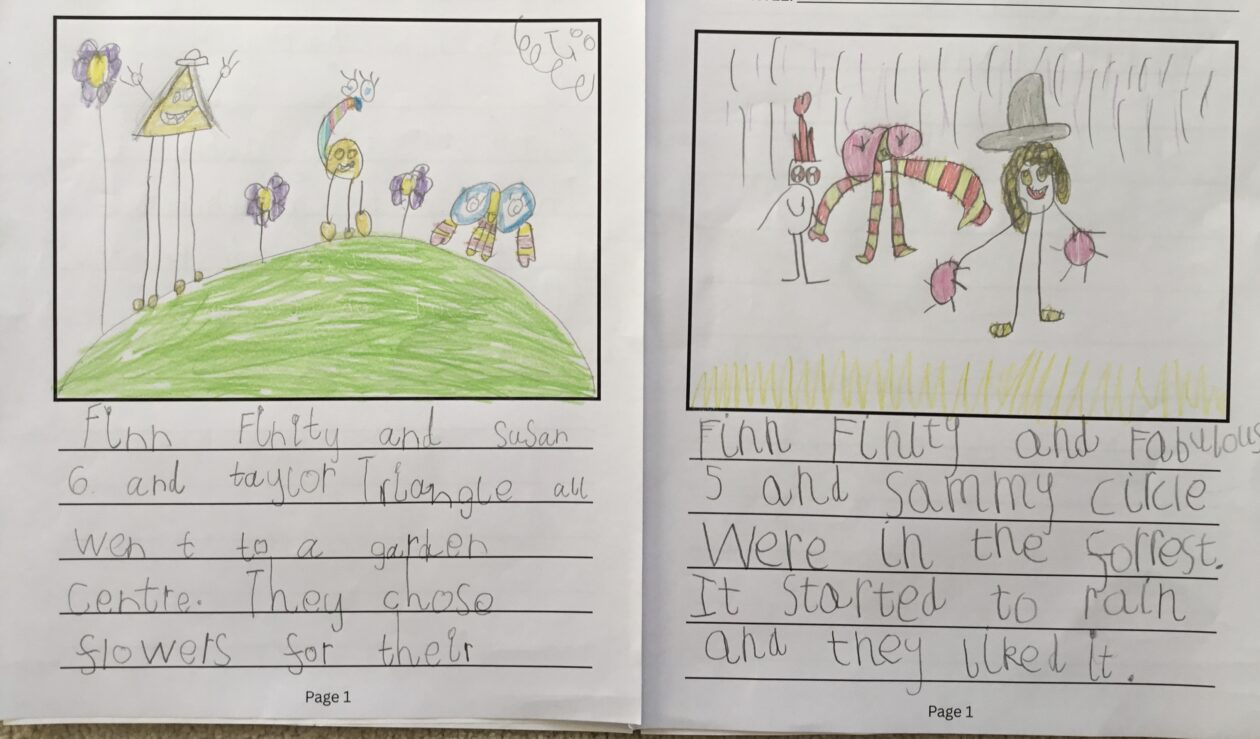 Finn Finity and Susan
6. and taylor Triangle all
went to a garden
centre. They chose
flowers for their
Page 1
Finn Finity and Fabulous
5 and Sammy circle
Were in the forrest.
It started to rain
and they liked it.
Page 1